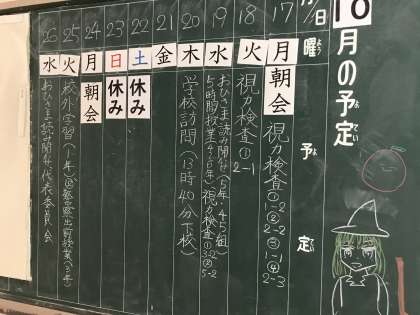 10月の予定
よてい
日 曜 予定
よ
17 月 朝会 視力検査①1-2 ②2-2 ③1-1 ④2-3
18 火 視力検査①2-1
19 水 おひさま読み聞かせ(5年、4・5組)
5時間授業(4・5・6年) 視力検査①3-2 ②5-2
20 木 学校訪問(13時40分下校)
21 金
22 土 休み
23 日 休み
24 月 朝会
25 火 校外学習(1年)
26 水 おひさま読み聞かせ 代表委員会